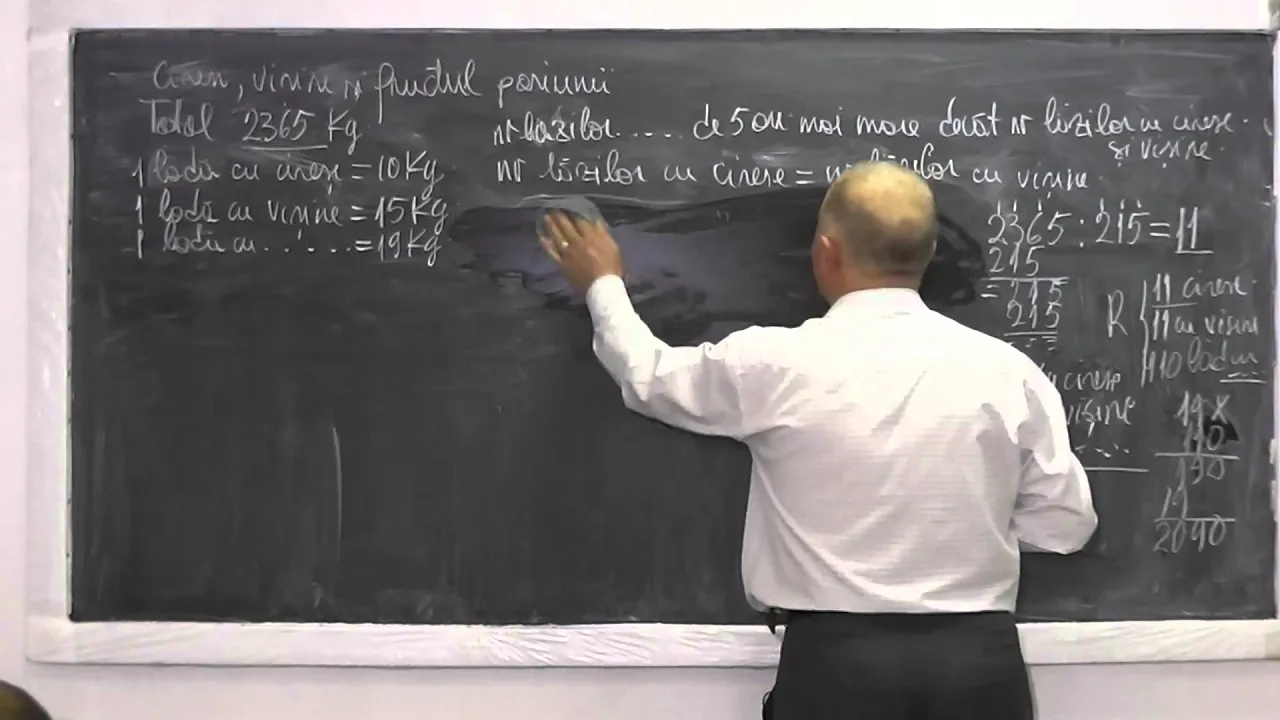 Cirese, visine și fructul pasiunii
Total 2365 Kg
1 ladă cu cirese = 10 Kg
1 ladă cu visine = 15 Kg
1 ladă cu ..... = 19 Kg
nr lăzilor ..... de 5 ori mai mare decât nr lăzilor cu cirese
și visine.
nr lăzilor cu cirese = cu visine
2365 : 215 = 11
215
= 215
215
R
11 cirese
11 cu visine
110 lăzi cu
.....
cirese
visine
....
19 x
110
190
19
2090